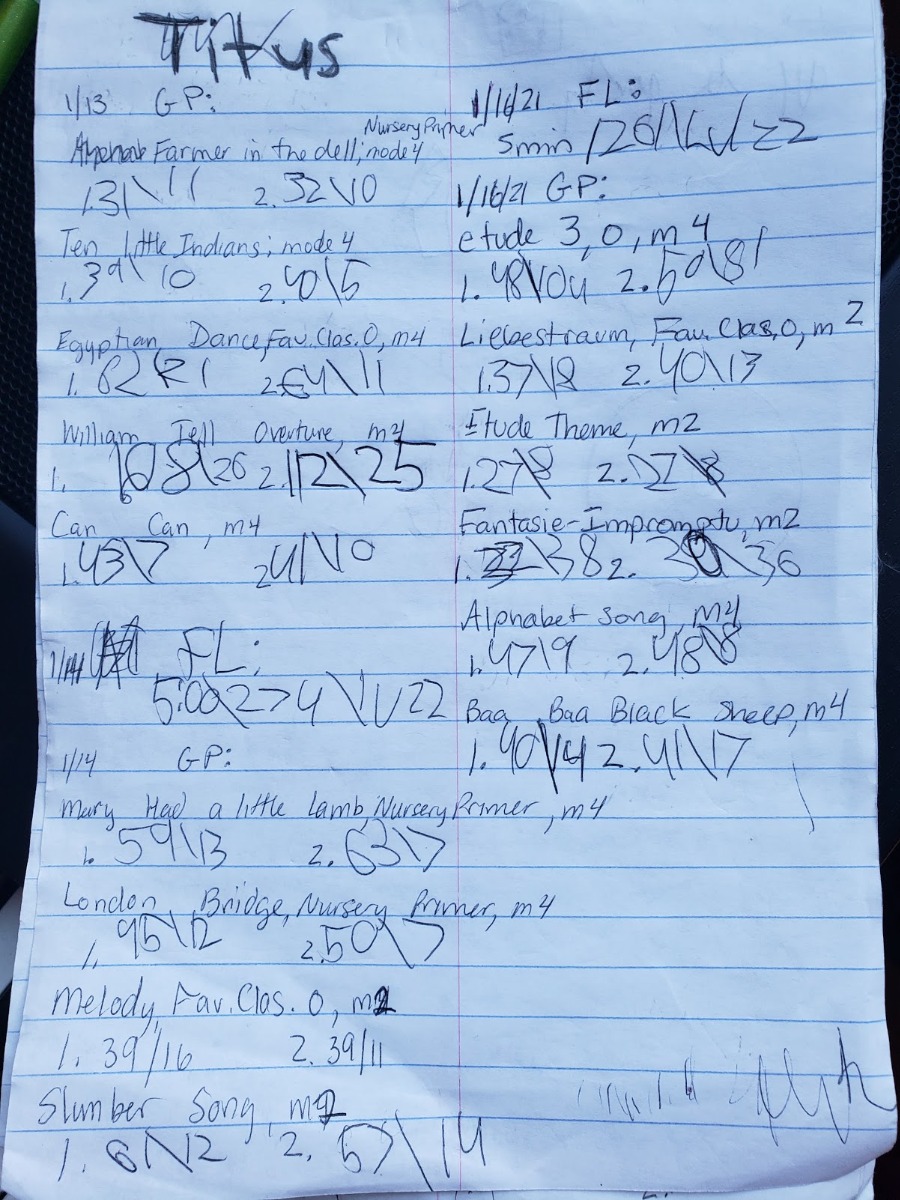 Titus
1/13 GP:
Nursery Primer
Farmer in the dell; mode 4
1.31\11 2.32\10
Ten little Indians; mode 4
1.39\10 2.40\5
Egyptian Dance, Fav. Clas. O, m4
1. 62 2.64\11
William Tell Overture, m4
1. 108\26 2.112\25
Can Can, m4
1.43\7 2.41\10
1/14 FL:
5:00
1/14 GP:
Mary Had a little lamb, Nursery Primer, m4
1. 59\13 2. 63\7
London Bridge, Nursery Primer, m4
1. \12 2.50\7
Melody, Fav. Clas. O, m2
1. 39/16 2. 39/11
Slumber Song, m2
1. 61\12 2. 57\14
1/16/21 FL:
5min
1/16/21 GP:
etude 3, O, m4
1. 48\ 2.
Liebestraum, Fav. Clas. O, m2
1.37\ 2. 40\13
Etude Theme, m2
1.27\8 2.27\8
Fantasie-Impromptu, m2
1. \38 2. 30\36
Alphabet song, m4
1.47\9 2.48\8
Baa Baa Black Sheep, m4
1.40\14 2.41\17